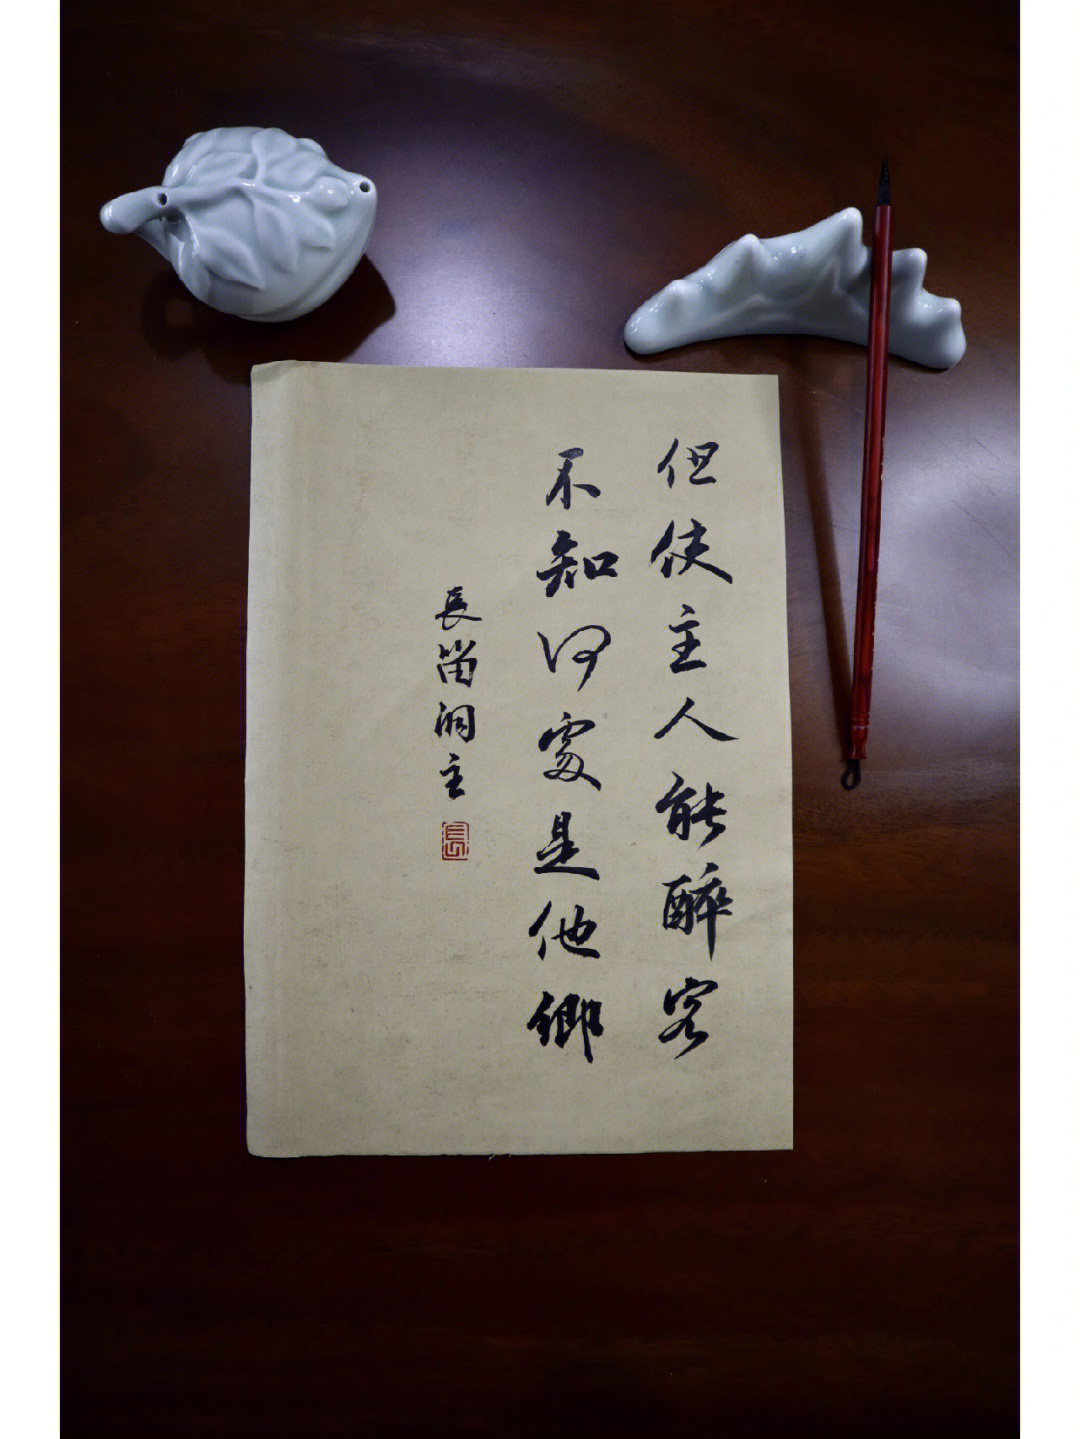 但使主人能醉客
不知何處是他鄉
長笛洞主
長